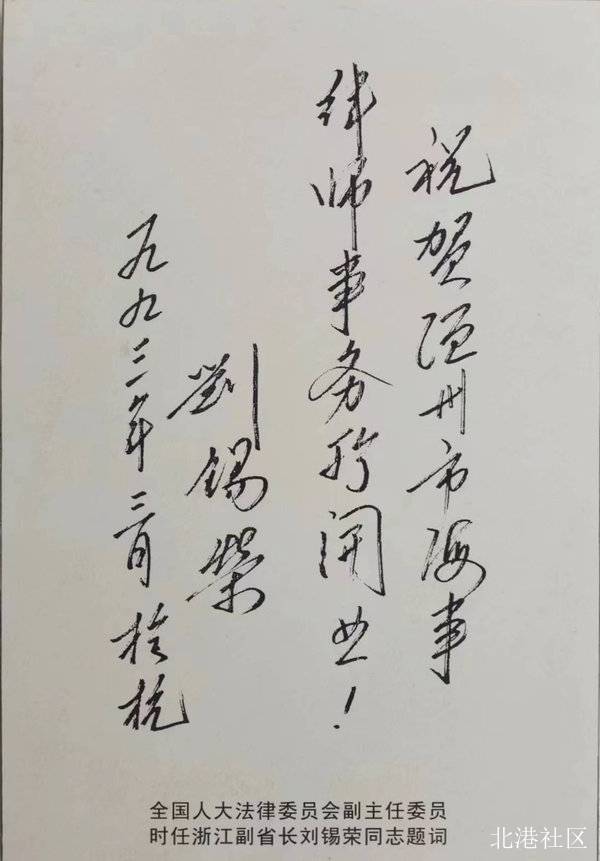 祝贺温州市海事
律师事务所开业！
劉锡荣
一九九三年三月於杭
全国人大法律委员会副主任委员
时任浙江副省长刘锡荣同志题词
北港社区